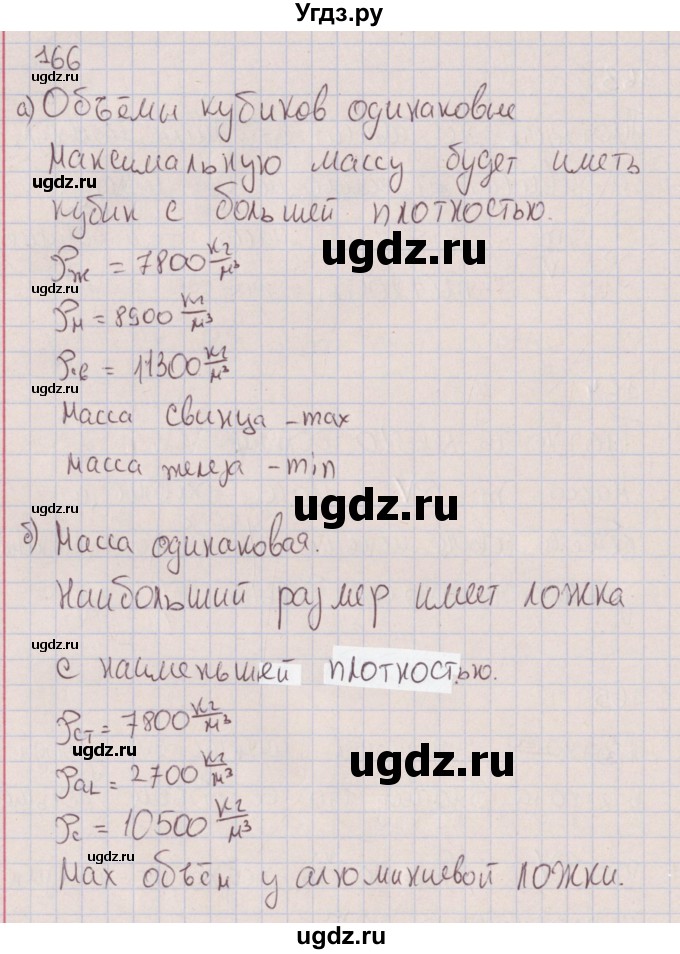 Угдз.ру
166
ugdz.ru
а) Объёмы кубиков одинаковые
Максимальную массу будет иметь
ugdz.ru
кубик с большей плотностью.
ρж = 7800 кг/м³
ugdz.ru
ugdz.ru
ρм = 8900 кг/м³
ρсв = 11300 кг/м³
ugdz.ru
Масса свинца - max
масса железа - min
ugdz.ru
ugdz.ru
б) Масса одинаковая.
Наибольший размер имеет ложка
ugdz.ru
с наименьшей плотностью.
ρст = 7800 кг/м³
ugdz.ru
ρаL = 2700 кг/м³
ugdz.ru
ρс = 10500 кг/м³
ugdz.ru
Мах объём у алюминиевой ложки.
ugdz.ru